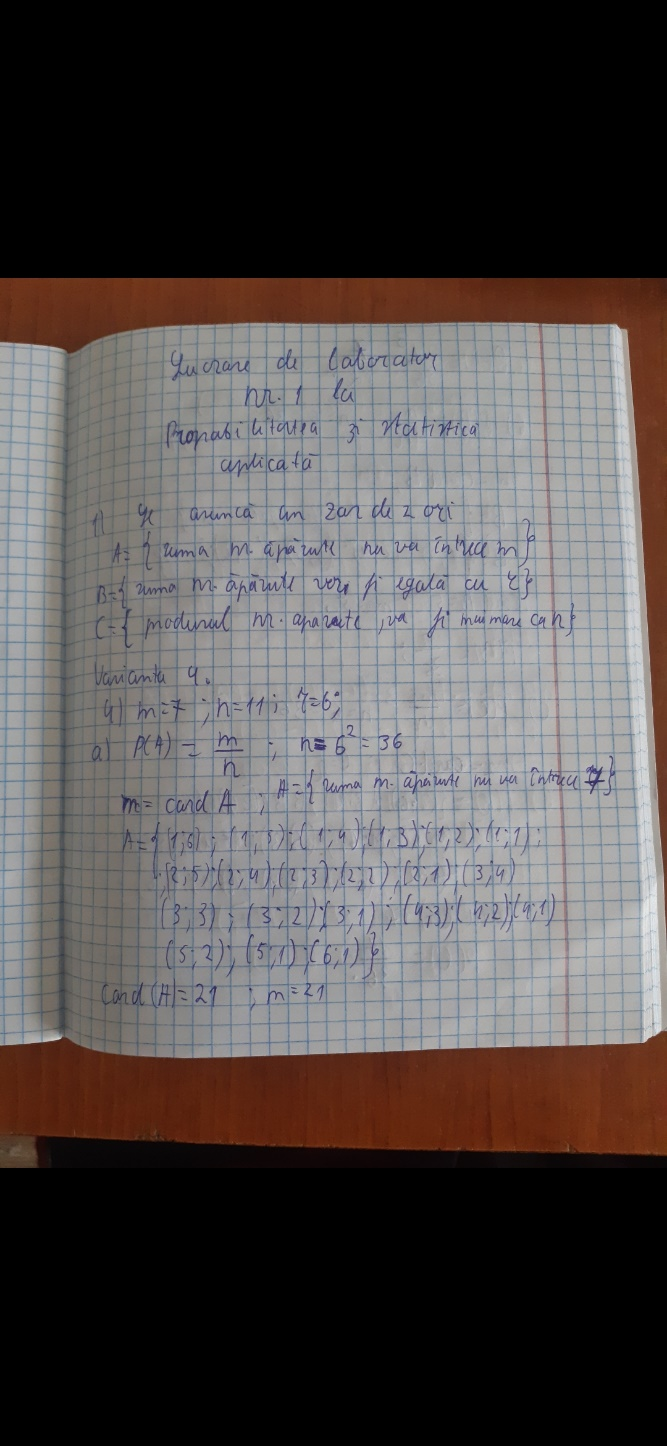 Lucrare de laborator
nr. 1 la
Propabilitatea și statistica
aplicată
1) Se aruncă un zar de 2 ori
A={suma nr. apărute nu va întrece m}
B={suma nr. apărute va fi egală cu r}
C={ nr. aparute, va fi mai mare ca n}
Varianta 4.
4) m=7 ; n=11; r=6;
a) P(A) = m/n ; n=6²=36
m= card A ; A={suma nr. apărute nu va întrece 7}
A={(1;6) ; (1;5); (1;4); (1;3); (1;2); (1;1);
(2;5); (2;4); (2;3); (2;2); (2;1); (3;4)
(3;3) ; (3;2) (3;1) ; (4;3); (4;2); (4;1)
(5;2); (5;1); (6;1)}
Card(A)=21 ; m=21